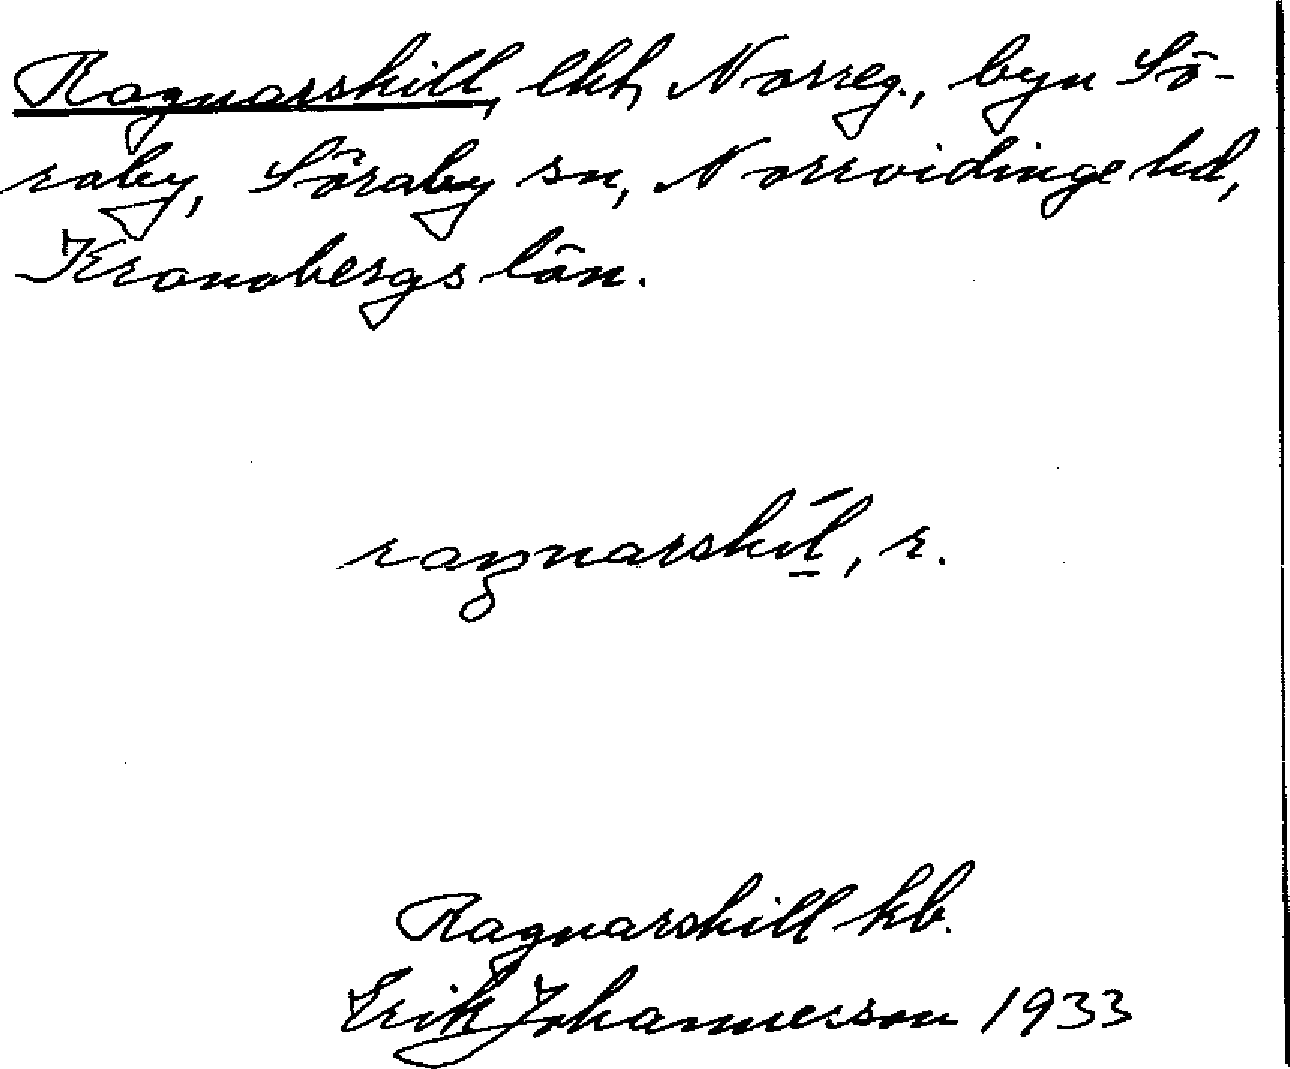 Ragnarskill, lht, Norreg., byn Sö-
raby, Söraby sn, Norrvidinge hd,
Kronobergs län.
ragnarskil, r.
Ragnarskill kb.
Erik Johannesson 1933